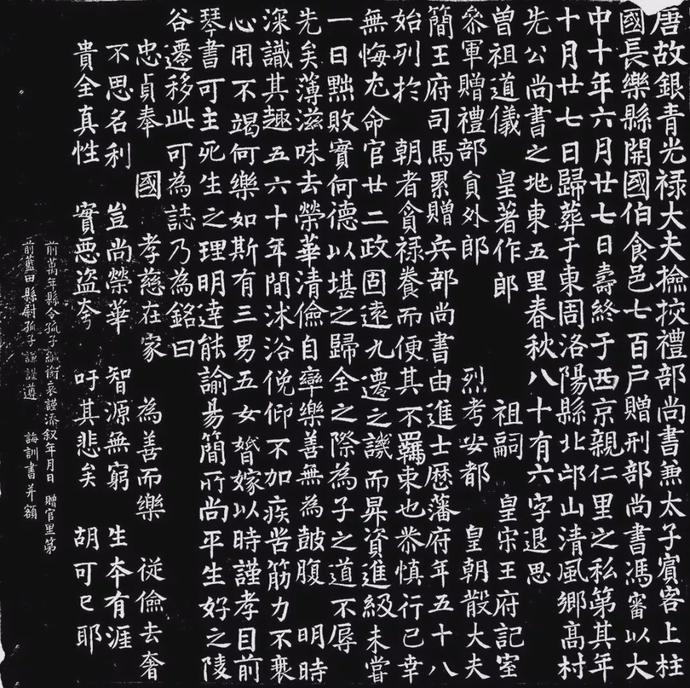 唐故銀青光禄大夫撿挍禮部尚書兼太子賓客上柱
國長樂縣開國伯食邑七百戸贈刑部尚書馮審以大
中十年六月廿七日壽終于西京親仁里之私第其年
十月廿七日歸葬于東周洛陽縣北邙山清風鄉髙村
先公尚書之地東五里春秋八十有六字退思
曾祖道儀 皇著作郎 祖嗣 皇宋王府記室
叅軍贈禮部貟外郎 烈考安都 皇朝散大夫
簡王府司馬累贈兵部尚書由進士歷藩府年五十八
始列於 朝者貪禄養而便其不羈束也恭慎行已幸
無悔尤命官廿二政固遠九遷之譏而昇資進級未嘗
一日黜敗實何德以堪之歸全之際為子之道不辱
先矣薄滋味去榮華清儉自牽樂善無為鼓腹 明時
深識其趣五六十年間沐浴俛仰不加疾苦筋力不衰
心用不竭何樂如斯有三男五女婚嫁以時謹孝目前
琴書可主死生之理明達能諭易簡所尚平生好之陵
谷遷移此可為誌乃為銘曰
忠貞奉 國 孝慈在家 為善而樂 從儉去奢
不思名利 豈尚榮華 智源無窮 生夲有涯
貴全真性 實惡盗夸 吁其悲矣 胡可已耶
前萬年縣令孤子緘銜哀謹添叙年月日 贈官里第
前藍田縣尉孤子謹遵 誨訓書并額